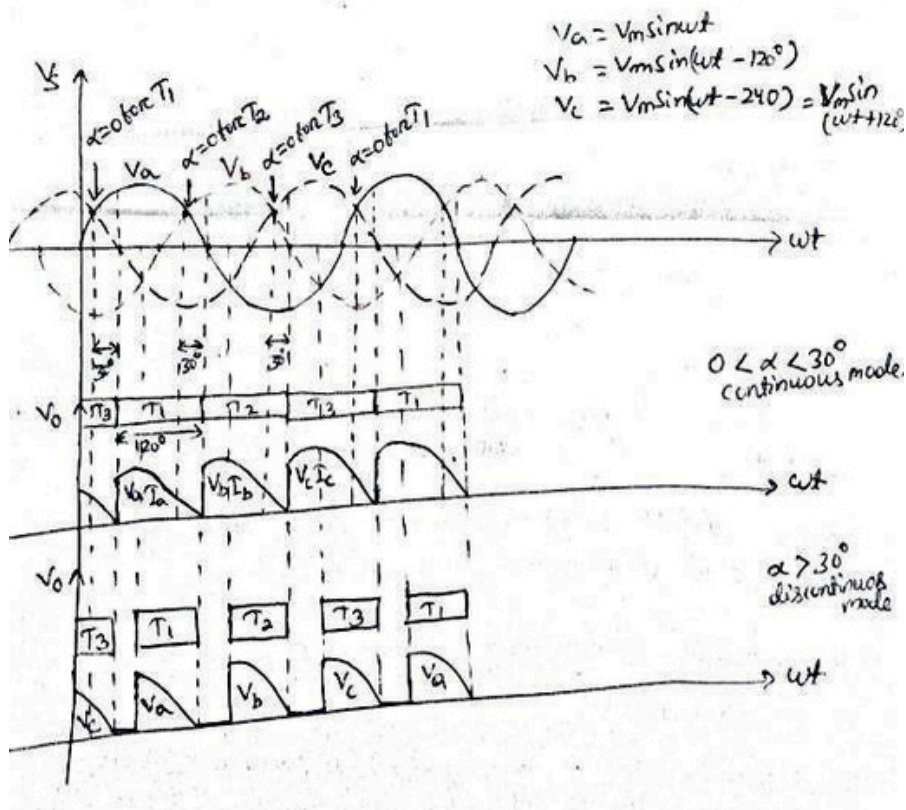 Va = Vm sinωt
Vb = Vm sin(ωt - 120°)
Vc = Vm sin(ωt - 240) = Vm sin
(ωt + 120)
Vs
α=0 for T1
α=0 for T2
α=0 for T3
α=0 for T1
Va
Vb
Vc
ωt
30°
30°
30°
0 < α < 30°
continuous mode.
V0
T3 T1 T2 T3 T1
120°
Va Ia
Vb Ib
Vc Ic
ωt
V0
α > 30°
discontinuos
mode
T3 T1 T2 T3 T1
Vc Va Vb Vc Va
ωt